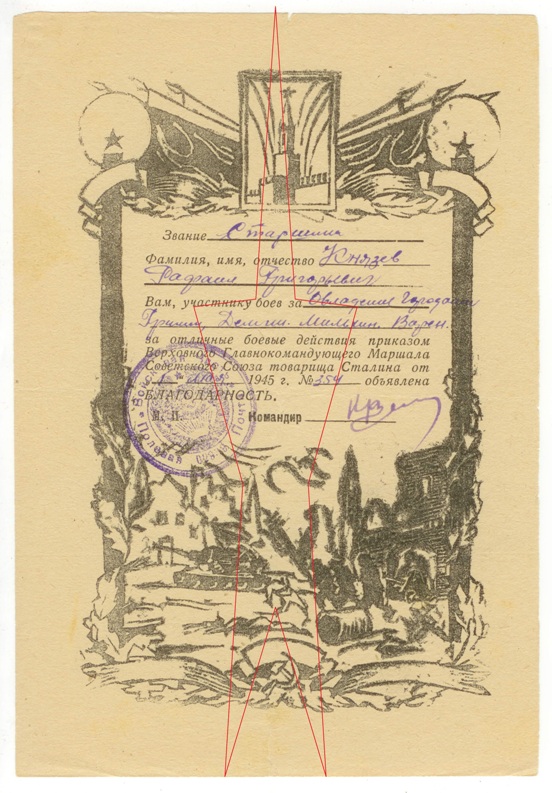 Звание Старшина
Фамилия, имя, отчество Князев
Рафаил Григорьевич
Вам, участнику боев за Овладение городами
Гримм, Деммин, Мальхин, Варен
за отличные боевые действия приказом
Верховного Главнокомандующего Маршала
Советского Союза товарища Сталина от
1 мая 1945 г. №354 объявлена
БЛАГОДАРНОСТЬ.
М. П. Командир
Полевая Почта